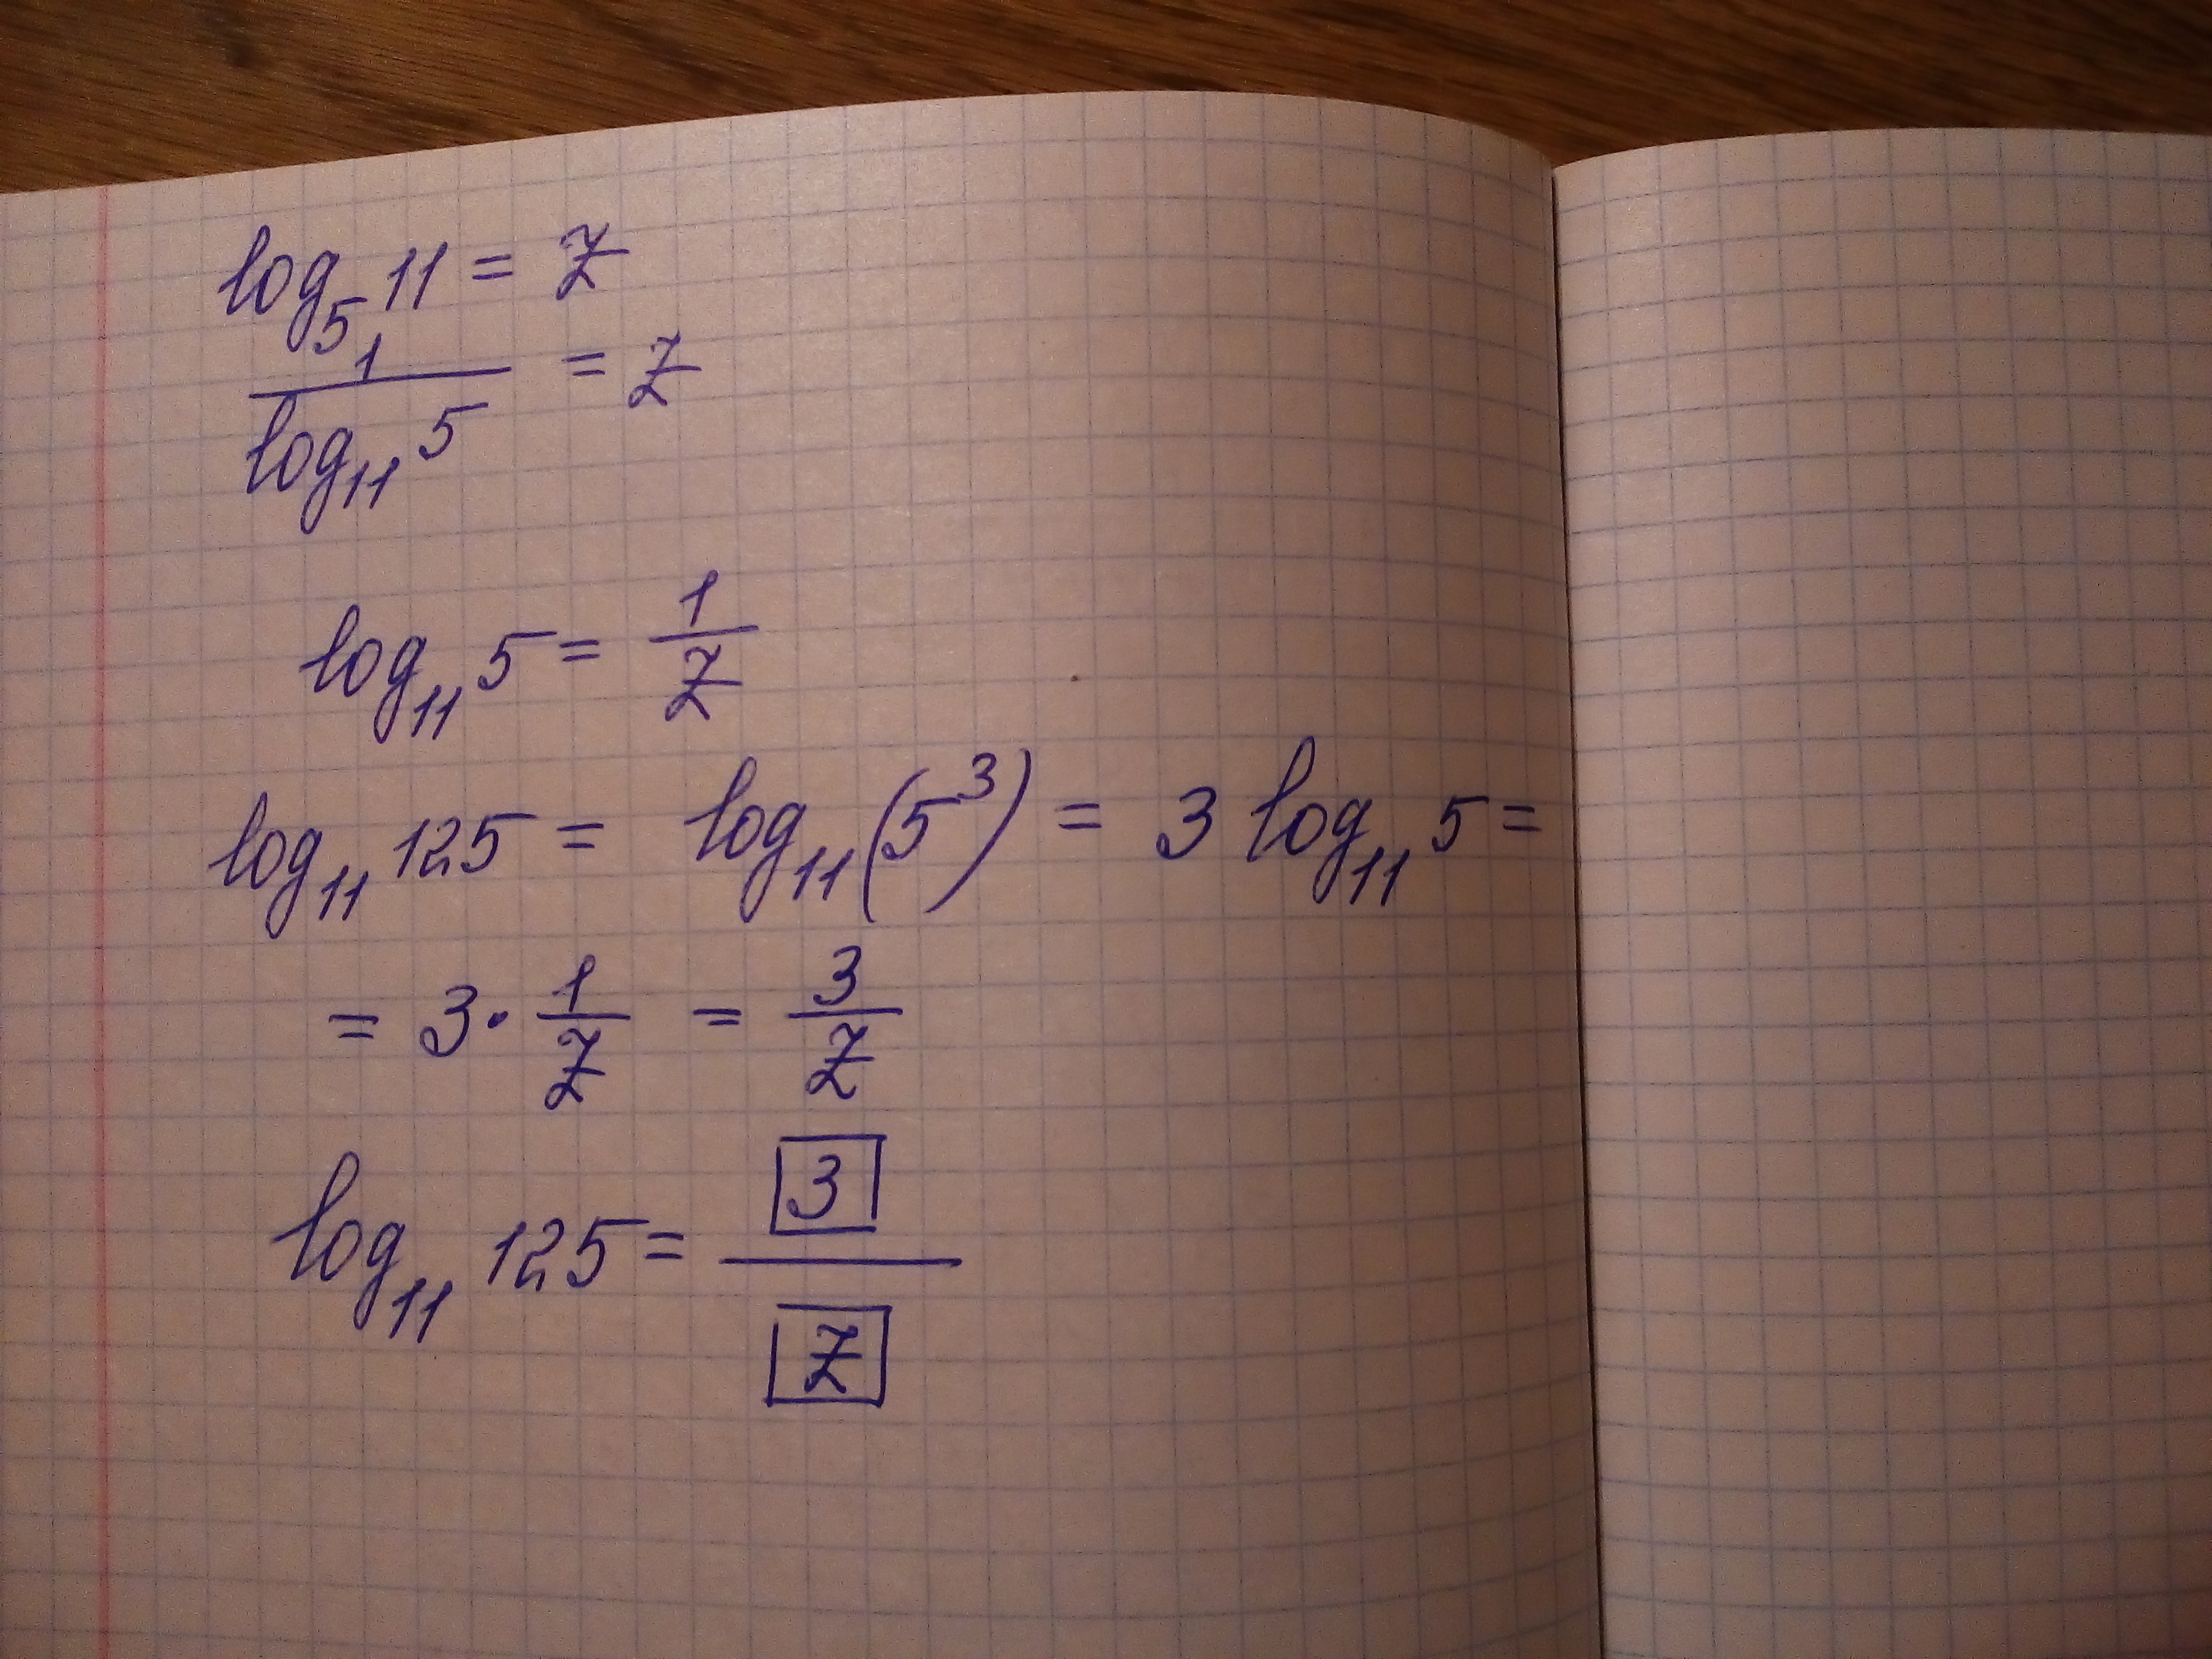 log₅ 11 = z
1/log₁₁ 5 = z
log₁₁ 5 = 1/z
log₁₁ 125 = log₁₁ (5³) = 3 log₁₁ 5 =
= 3 · 1/z = 3/z
log₁₁ 125 = 3/z